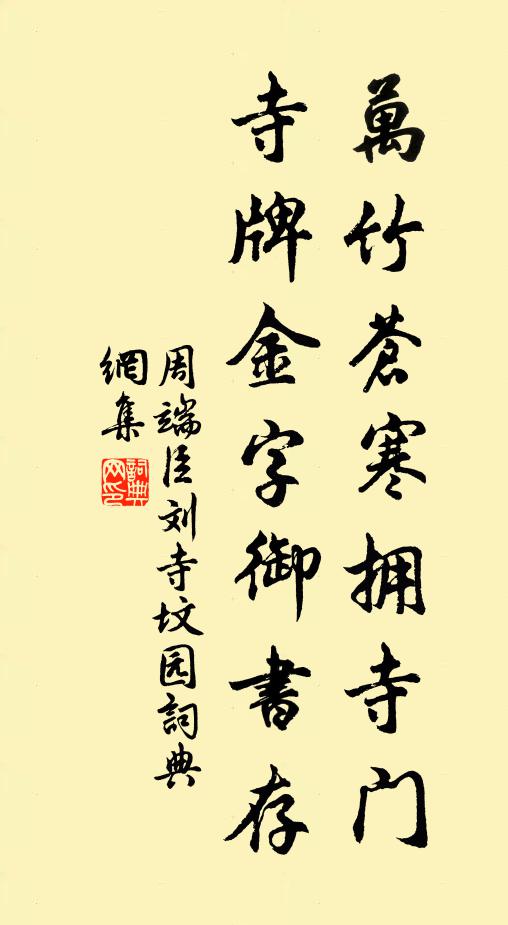 萬竹蒼寒拥寺门
寺牌金字御書存
周端臣刘寺坟园詞典
網集
詞典
网印